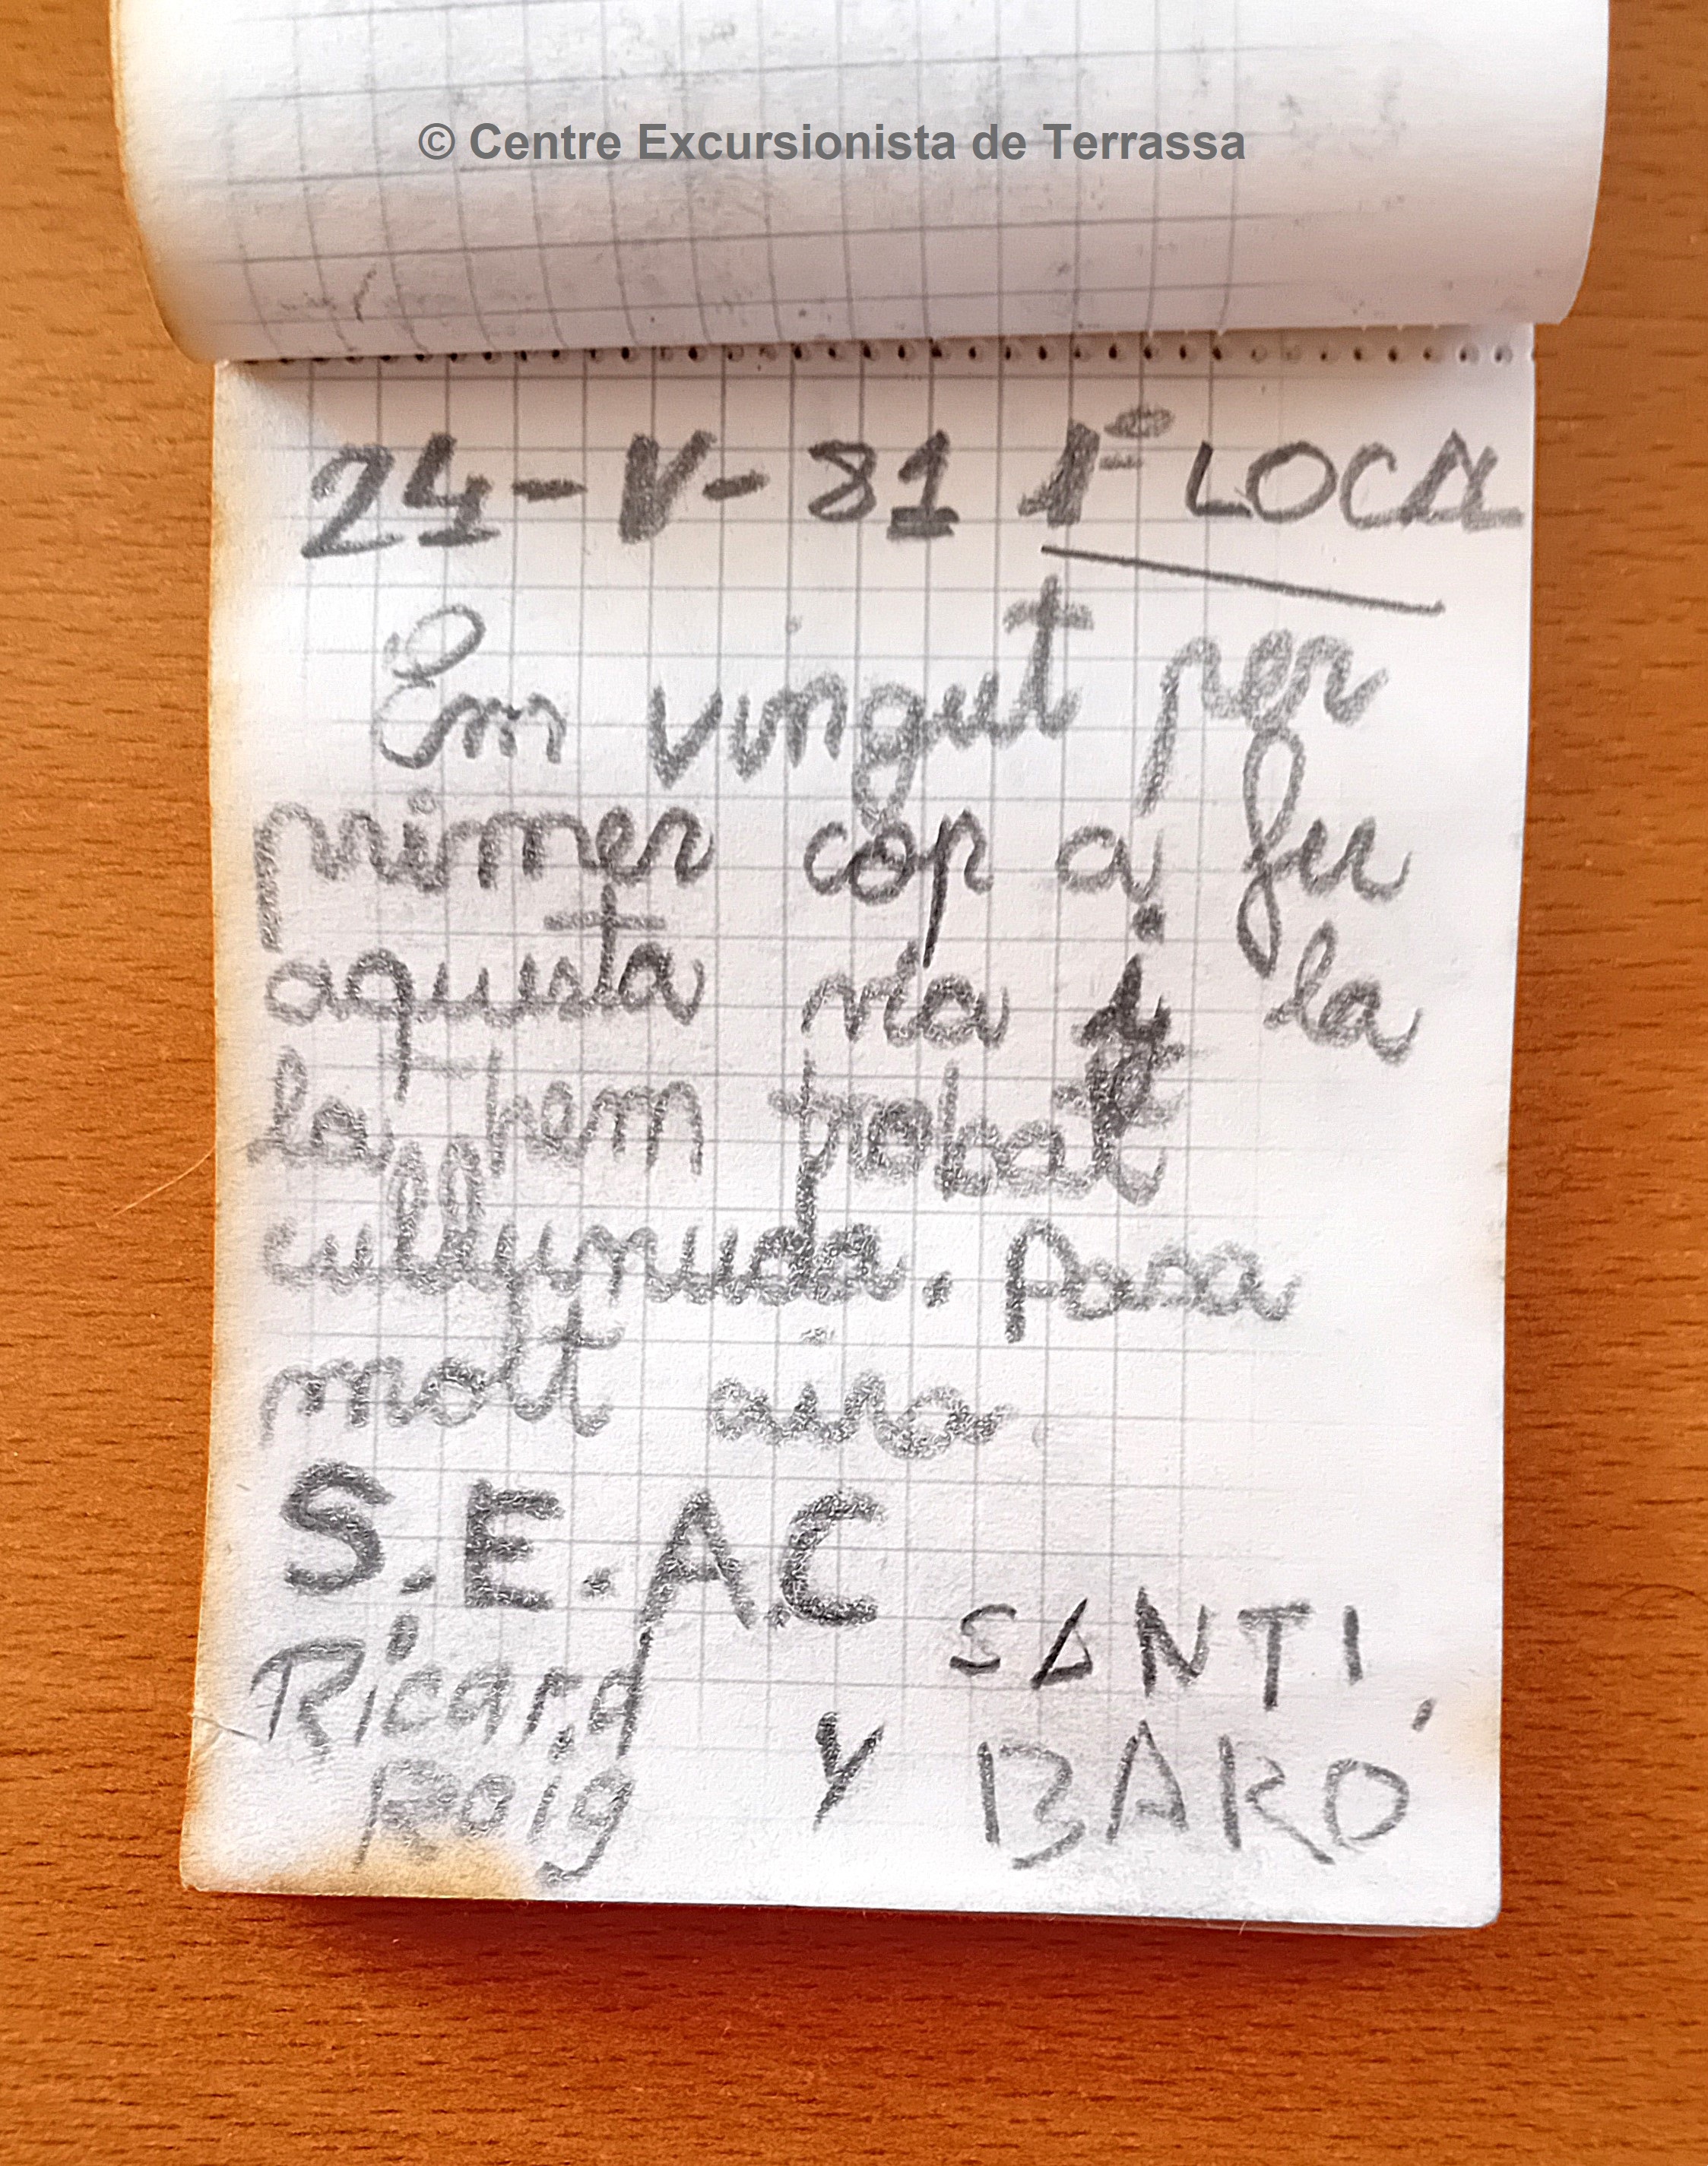 © Centre Excursionista de Terrassa
24-V-81 1ª LOCAL
Em vingut per
primer cop a fer
aquesta via i la
la hem trobat
collunuda. Pasa
molt aira
S.E.A.C
Ricard SANTI
Roig Y BARÓ